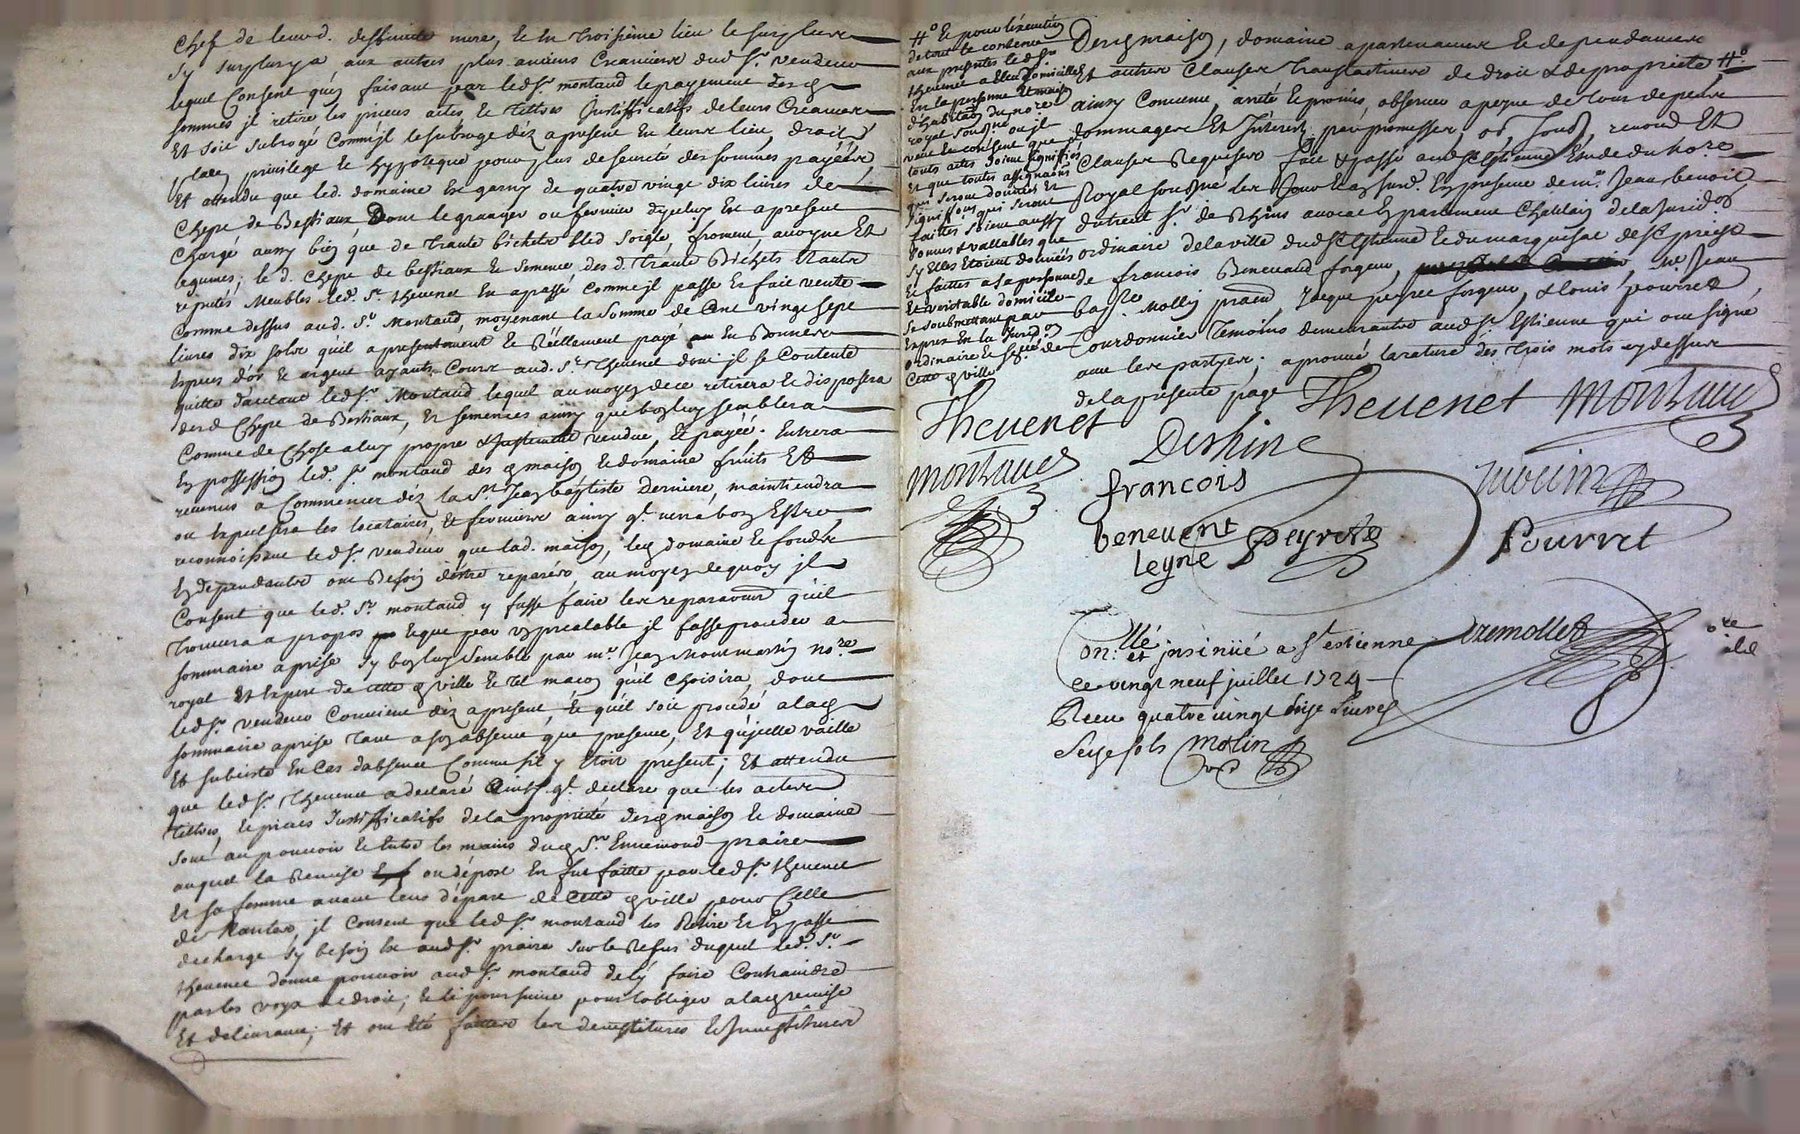 chef de leurd. deffunte mere, et en troisième lieu le surplus
sy surplus ya aux autres plus anciens creanciers dud sr. vendeur
lequel consent qu'en faisant par led sr. montaud le payement desd
sommes il retire les pieces actes, et tiltres justifficatifs de leurs creances
et soit subrogé comme il le subroge déz a present en leurs lieu, droit
place privilege et hypoteque pour plus de seureté des sommes payéés,
et attendu que led. domaine est garny de quatre vingt dix livres de
chepx de bestiaux dont le granger ou fermier d'yceluy est a present
chargé ainsy bien que de trante bichets bled soigle, froment, avoyne et
legumes; le d. chepx de bestiaux et semence des d. trante bichets et autre
reputés meubles led. sr. thevenet en a passé comme il passe et fait vente
comme dessus aud. sr. montaud, moyenant la somme de cent vingt sept
livres dix sols qu'il a presentement et réèllement payé en bonnes
espuces d'or et argent ayants cours aud. sr. thevenet dont il se contente
quitte d'autant led sr. montaud lequel au moyen de ce retirera et disposera
desd chepx de bestiaux, et semences ainsy que bon luy semblera
comme de chose a luy propre et justement vendue, et payéé. entrera
en possession led. sr. montaud des q maison et domaine fruits et
revenus a commencer déz la st jean baptiste derniere, maintiendra
ou expulsera les locataires, et fermiers ainsy ql. verra bon estre
reconnoissant led sr. vendeur que lad. maison, led domaine et fonds
en dependants ont besoin d'estre reparés, au moyen de quoy il
consent que led. sr. montaud y fasse faire les reparations qu'il
trouvera a propos et que par un prealable il fasse proceder a
sommaire aprise sy bon luy semble par mr. jean montmartin nore.
royal et expert de cette q ville et tel macon qu'il choisira, dont
led sr. vendeur convient dez a present, et qu'il soit procédé a lad
sommaire aprise tant a son absence que presence, et qu'icelle vaille
et subciste en cas d'absence comme s'il y etoit present; et attendu
que led sr. thevenet a declaré ainsy ql. declare que les actes
tiltres, et pieces justifficatifs de la propriété desd maison et domaine
sont au pouvoir et entre les mains dud sr. ennemond praire
auquel la remise ou dépost en fut faitte par led sr. thevenet
et sa femme avant leurs départ de cette q ville pour celle
de nantes, il consent que led sr. montaud les retire et en passe
decharge sy besoin est aud sr. praire sur le refus duquel led. sr.
thevenet donne pouvoir aud sr. montaud de l'y faire contraindre
par les voyes de droit, et le poursuivre pour l'obliger a lad remise
et delivrance; et ont été faittes les demptitures et investitures
#o et pour l'execution
de tout le contenu
aux presentes led sr.
thevenet a elleu domicille
en la personne et maison
d'habitaon du nore
royal sousgné ou il
veut et consent que
touts actes soient signiffiés
et que toutes assignaons
qui seront donnéés et
signiffions qui seront
faittes soient aussy
bonnes et vallables que
sy elles étoient donnéés
et faittes a sa personne
et veritable domicile
se soubmettant pour
expres en la jurisdon
ordinaire et senée de
cette q ville
desq maison, domaine apartenances et dependances
et autres clauses translatives de droit et de proprieté #o
ainsy convenu, arrété et promis, observer a peyne de tous depens
dommages et interets par promesses, obon, sousmon, renonon et
clauses requises fait et passé aud st estienne etude du nore
royal sousgné les jour et an susd. en presence de mre jean benoit
dutreul sr. de rhins avocat en parlement chatelain de la jurisdon
ordinaire de la ville dud st estienne et du marquisat de st priest
de francois benevand forgeur, sr. jean
bapte. molly pratn, jacque peyret forgeur, et louis pourret
courdonnier temoins demeurants aud st. estienne qui ont signé
avec les partyes; aprouvé la rature des trois mots cy dessus
de la presente page
Thevenet Montaud
Thevenet
Montaud
Derhins
francois
benevent
leyne Peyrete
Pourret
Onllé et insinüé a st estienne
ce vingt neuf juillet 1724
Receu quatre vingt seise livres
Seize sols Molin
tremollet